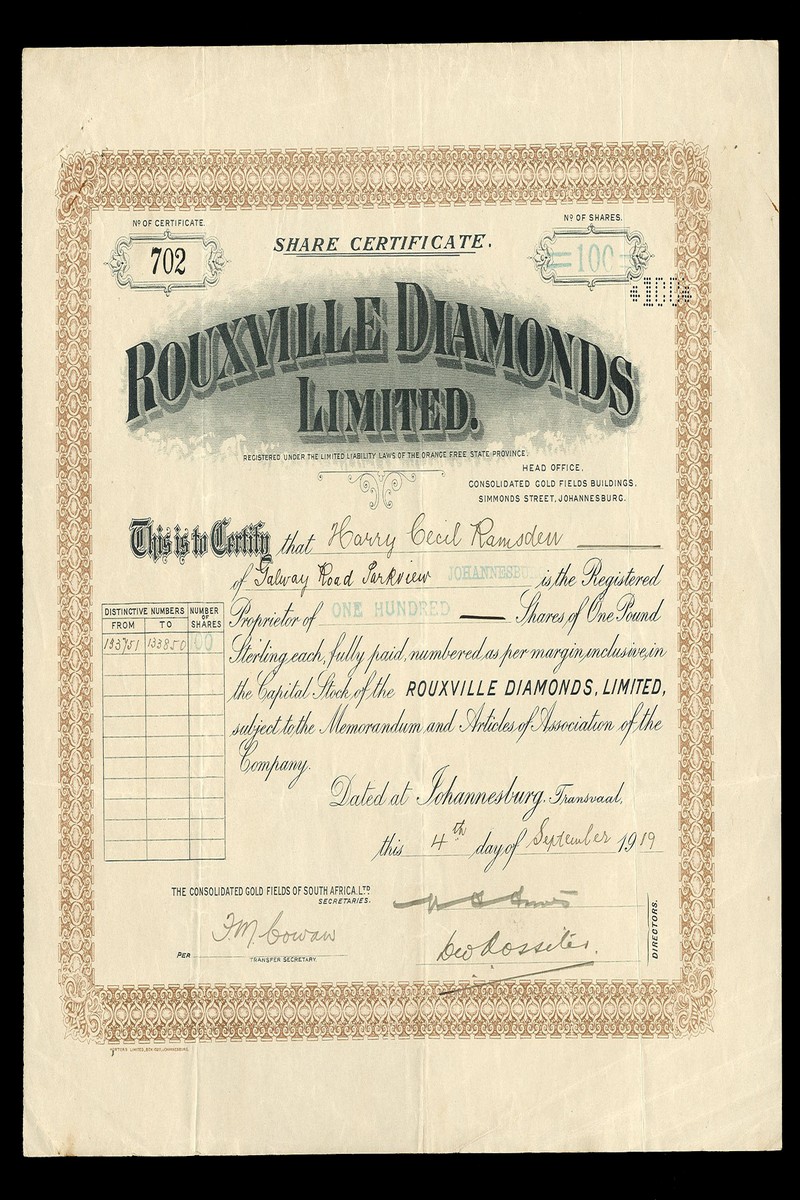 Nº OF CERTIFICATE.
702
SHARE CERTIFICATE.
Nº OF SHARES.
=100=
*100*
ROUXVILLE DIAMONDS
LIMITED.
REGISTERED UNDER THE LIMITED LIABILITY LAWS OF THE ORANGE FREE STATE PROVINCE.
HEAD OFFICE,
CONSOLIDATED GOLD FIELDS BUILDINGS,
SIMMONDS STREET, JOHANNESBURG.
This is to Certify that Harry Cecil Ramsden
of Galway Road Parkview JOHANNESBURG is the Registered
Proprietor of ONE HUNDRED Shares of One Pound
Sterling each, fully paid, numbered as per margin, inclusive, in
the Capital Stock of the ROUXVILLE DIAMONDS, LIMITED,
subject to the Memorandum and Articles of Association of the
Company.
DISTINCTIVE NUMBERS NUMBER OF SHARES
FROM TO
133751 133850 100
Dated at Johannesburg. Transvaal,
this 4th day of September 1919
THE CONSOLIDATED GOLD FIELDS OF SOUTH AFRICA, LTD
SECRETARIES.
PER F.M. Cowan
TRANSFER SECRETARY.
Geo Rossiter.
DIRECTORS.